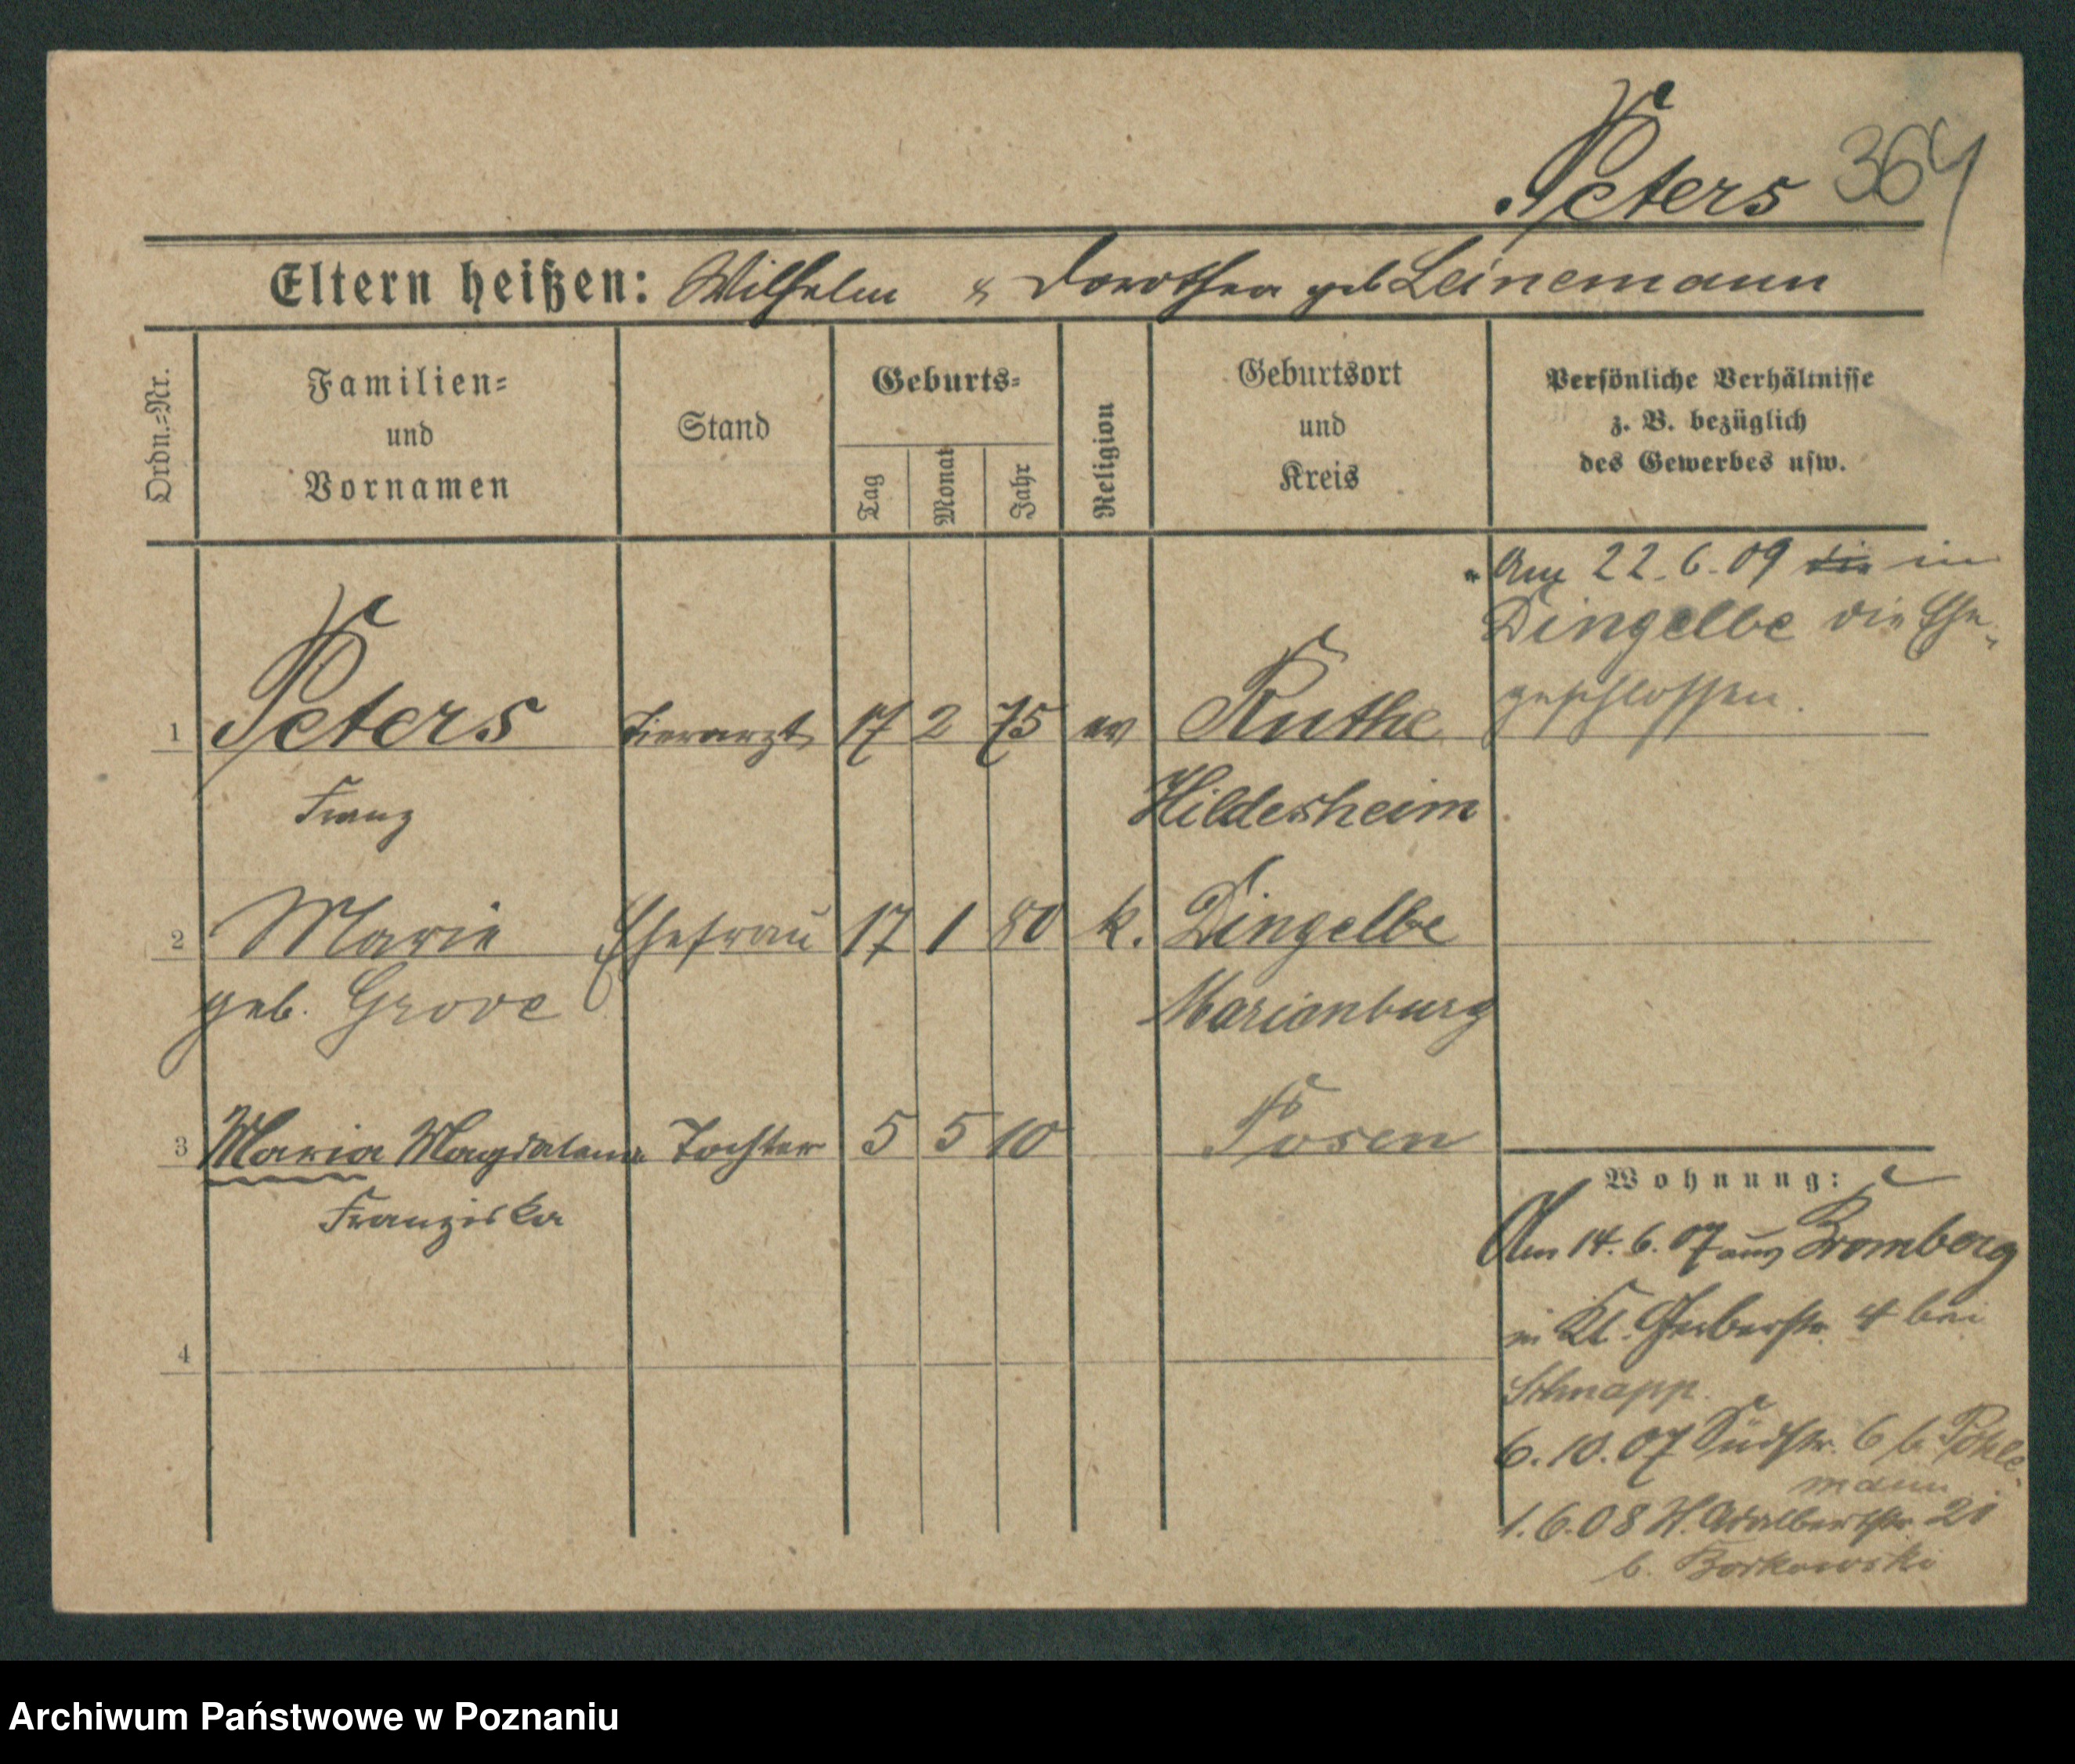 Peters 364
Eltern heißen: Wilhelm & Dorothea geb Leinemann
Ordn.-Nr.
Familien-
und
Vornamen
Stand
Geburts-
Tag
Monat
Jahr
Religion
Geburtsort
und
Kreis
Persönliche Verhältnisse
z. B. bezüglich
des Gewerbes usw.
Am 22.6.09 die in
Dingelbe die Ehe
geschlossen.
1 Peters Tierarzt 17 2 75 ev Ruthe
Franz Hildesheim
2 Marie Ehefrau 17 1 80 k. Dingelbe
geb. Grove Marienburg
3 Maria Magdalena Tochter 5 5 10 Posen
Franziska
4
Wohnung:
Am 14.6.07 aus Bromberg
in Kl. Gerberstr. 4 bei
Schnapp.
6.10.07 Südstr. 6 b. Pohle-
mann
1.6.08 St. Adalbertstr. 20
b. Borkowski
Archiwum Państwowe w Poznaniu